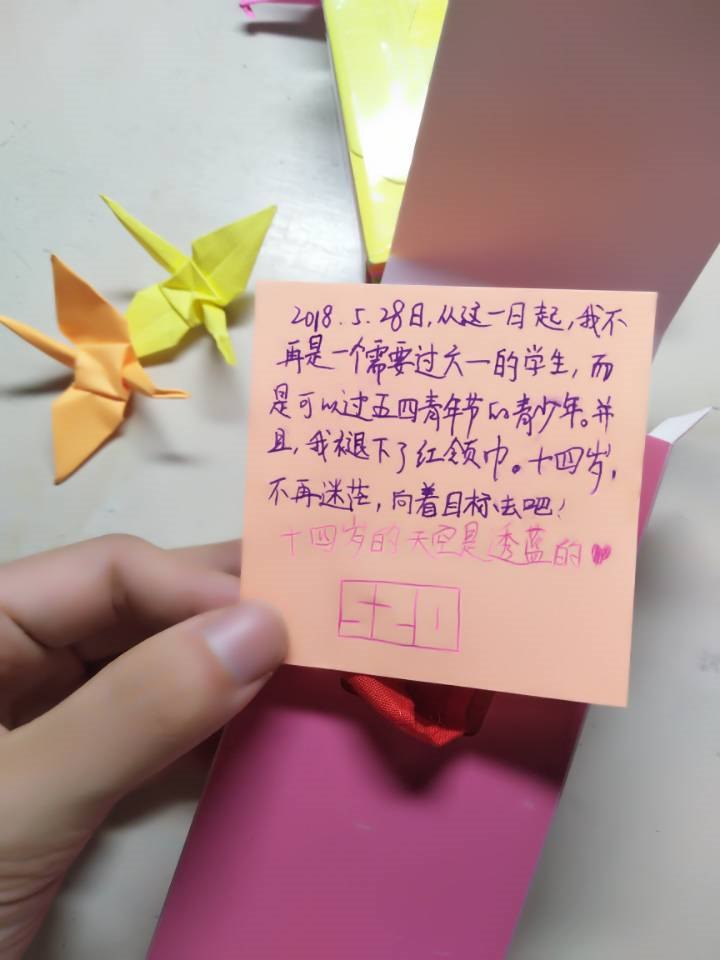 2018.5.28日,从这一日起,我不
再是一个需要过六一的学生,而
是可以过五四青年节的青少年。并
且,我褪下了红领巾。十四岁,
不再迷茫,向着目标去吧!
十四岁的天空是透蓝的♥